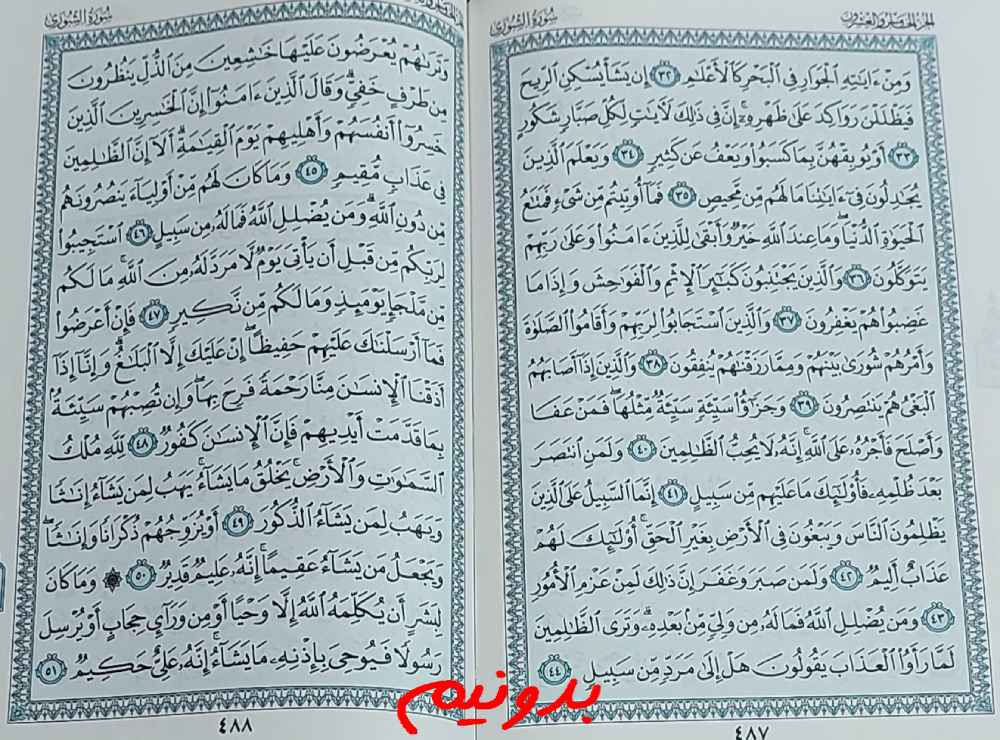 الجزء الخامس والعشرون
سورة الشورى
وَمِنْ ءَايَٰتِهِ ٱلْجَوَارِ فِى ٱلْبَحْرِ كَٱلْأَعْلَٰمِ ٣٢ إِن يَشَأْ يُسْكِنِ ٱلرِّيحَ
فَيَظْلَلْنَ رَوَاكِدَ عَلَىٰ ظَهْرِهِۦٓ إِنَّ فِى ذَٰلِكَ لَءَايَٰتٍ لِّكُلِّ صَبَّارٍ شَكُورٍ
٣٣ أَوْ يُوبِقْهُنَّ بِمَا كَسَبُوا۟ وَيَعْفُ عَن كَثِيرٍ ٣٤ وَيَعْلَمَ ٱلَّذِينَ
يُجَٰدِلُونَ فِىٓ ءَايَٰتِنَا مَا لَهُم مِّن مَّحِيصٍ ٣٥ فَمَآ أُوتِيتُم مِّن شَىْءٍ فَمَتَٰعُ
ٱلْحَيَوٰةِ ٱلدُّنْيَا ۖ وَمَا عِندَ ٱللَّهِ خَيْرٌ وَأَبْقَىٰ لِلَّذِينَ ءَامَنُوا۟ وَعَلَىٰ رَبِّهِمْ
يَتَوَكَّلُونَ ٣٦ وَٱلَّذِينَ يَجْتَنِبُونَ كَبَٰٓئِرَ ٱلْإِثْمِ وَٱلْفَوَٰحِشَ وَإِذَا مَا
غَضِبُوا۟ هُمْ يَغْفِرُونَ ٣٧ وَٱلَّذِينَ ٱسْتَجَابُوا۟ لِرَبِّهِمْ وَأَقَامُوا۟ ٱلصَّلَوٰةَ
وَأَمْرُهُمْ شُورَىٰ بَيْنَهُمْ وَمِمَّا رَزَقْنَٰهُمْ يُنفِقُونَ ٣٨ وَٱلَّذِينَ إِذَآ أَصَابَهُمُ
ٱلْبَغْىُ هُمْ يَنتَصِرُونَ ٣٩ وَجَزَٰٓؤُا۟ سَيِّئَةٍ سَيِّئَةٌ مِّثْلُهَا ۖ فَمَنْ عَفَا
وَأَصْلَحَ فَأَجْرُهُۥ عَلَى ٱللَّهِ ۚ إِنَّهُۥ لَا يُحِبُّ ٱلظَّٰلِمِينَ ٤٠ وَلَمَنِ ٱنتَصَرَ
بَعْدَ ظُلْمِهِۦ فَأُو۟لَٰٓئِكَ مَا عَلَيْهِم مِّن سَبِيلٍ ٤١ إِنَّمَا ٱلسَّبِيلُ عَلَى ٱلَّذِينَ
يَظْلِمُونَ ٱلنَّاسَ وَيَبْغُونَ فِى ٱلْأَرْضِ بِغَيْرِ ٱلْحَقِّ ۚ أُو۟لَٰٓئِكَ لَهُمْ
عَذَابٌ أَلِيمٌ ٤٢ وَلَمَن صَبَرَ وَغَفَرَ إِنَّ ذَٰلِكَ لَمِنْ عَزْمِ ٱلْأُمُورِ
٤٣ وَمَن يُضْلِلِ ٱللَّهُ فَمَا لَهُۥ مِن وَلِىٍّ مِّنۢ بَعْدِهِۦ ۗ وَتَرَى ٱلظَّٰلِمِينَ
لَمَّا رَأَوُا۟ ٱلْعَذَابَ يَقُولُونَ هَلْ إِلَىٰ مَرَدٍّ مِّن سَبِيلٍ ٤٤
٤٨٧
سورة الشورى
وَتَرَىٰهُمْ يُعْرَضُونَ عَلَيْهَا خَٰشِعِينَ مِنَ ٱلذُّلِّ يَنظُرُونَ
مِن طَرْفٍ خَفِىٍّ ۗ وَقَالَ ٱلَّذِينَ ءَامَنُوٓا۟ إِنَّ ٱلْخَٰسِرِينَ ٱلَّذِينَ
خَسِرُوٓا۟ أَنفُسَهُمْ وَأَهْلِيهِمْ يَوْمَ ٱلْقِيَٰمَةِ ۗ أَلَآ إِنَّ ٱلظَّٰلِمِينَ
فِى عَذَابٍ مُّقِيمٍ ٤٥ وَمَا كَانَ لَهُم مِّنْ أَوْلِيَآءَ يَنصُرُونَهُم
مِّن دُونِ ٱللَّهِ ۗ وَمَن يُضْلِلِ ٱللَّهُ فَمَا لَهُۥ مِن سَبِيلٍ ٤٦ ٱسْتَجِيبُوا۟
لِرَبِّكُم مِّن قَبْلِ أَن يَأْتِىَ يَوْمٌ لَّا مَرَدَّ لَهُۥ مِنَ ٱللَّهِ ۚ مَا لَكُم
مِّن مَّلْجَإٍ يَوْمَئِذٍ وَمَا لَكُم مِّن نَّكِيرٍ ٤٧ فَإِنْ أَعْرَضُوا۟
فَمَآ أَرْسَلْنَٰكَ عَلَيْهِمْ حَفِيظًا ۖ إِنْ عَلَيْكَ إِلَّا ٱلْبَلَٰغُ ۗ وَإِنَّآ إِذَآ
أَذَقْنَا ٱلْإِنسَٰنَ مِنَّا رَحْمَةً فَرِحَ بِهَا ۖ وَإِن تُصِبْهُمْ سَيِّئَةٌۢ
بِمَا قَدَّمَتْ أَيْدِيهِمْ فَإِنَّ ٱلْإِنسَٰنَ كَفُورٌ ٤٨ لِّلَّهِ مُلْكُ
ٱلسَّمَٰوَٰتِ وَٱلْأَرْضِ ۚ يَخْلُقُ مَا يَشَآءُ ۚ يَهَبُ لِمَن يَشَآءُ إِنَٰثًا
وَيَهَبُ لِمَن يَشَآءُ ٱلذُّكُورَ ٤٩ أَوْ يُزَوِّجُهُمْ ذُكْرَانًا وَإِنَٰثًا ۖ
وَيَجْعَلُ مَن يَشَآءُ عَقِيمًا ۚ إِنَّهُۥ عَلِيمٌ قَدِيرٌ ٥٠ ۞ وَمَا كَانَ
لِبَشَرٍ أَن يُكَلِّمَهُ ٱللَّهُ إِلَّا وَحْيًا أَوْ مِن وَرَآئِ حِجَابٍ أَوْ يُرْسِلَ
رَسُولًا فَيُوحِىَ بِإِذْنِهِۦ مَا يَشَآءُ ۚ إِنَّهُۥ عَلِىٌّ حَكِيمٌ ٥١
٤٨٨
بدونیم